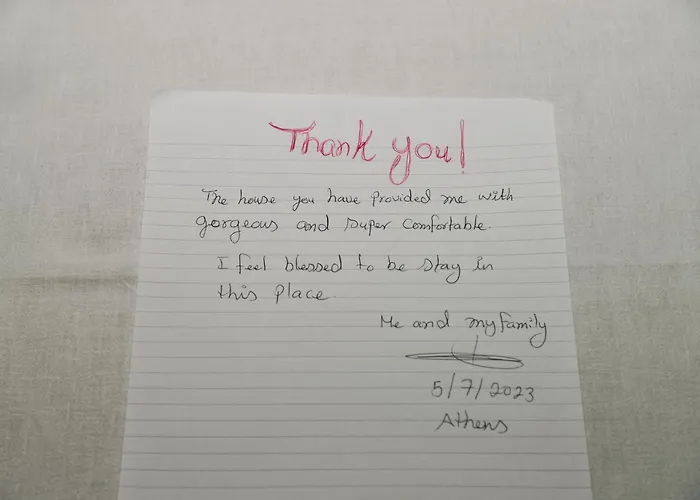 Thank you!
The house you have provided me with
gorgeous and super comfortable.
I feel blessed to be stay in
this place.
Me and my family
5/7/2023
Athens